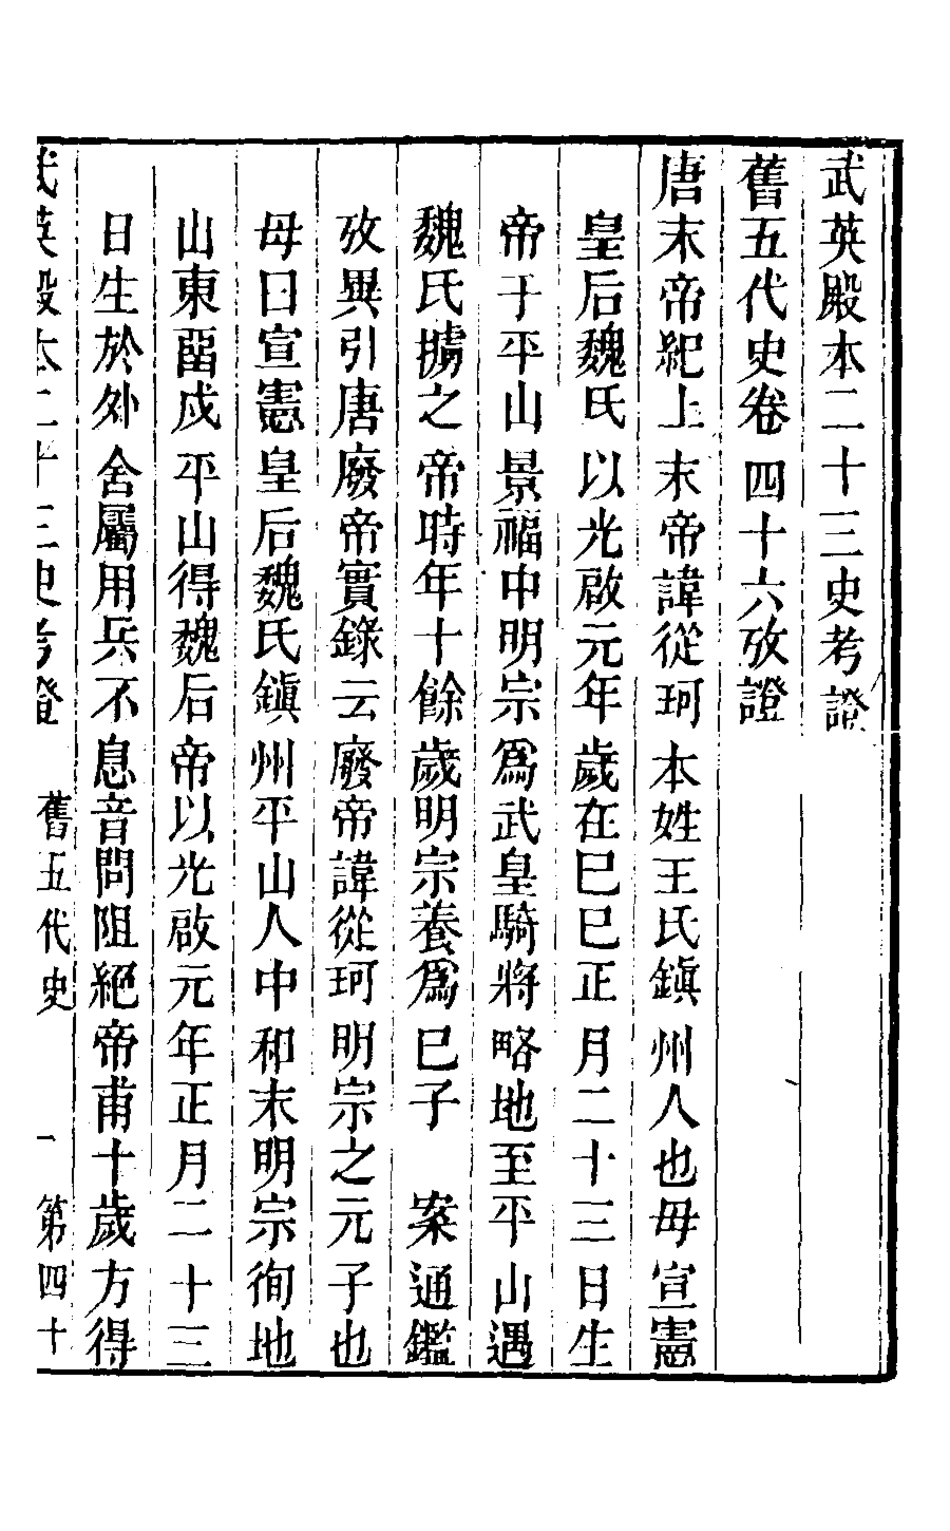 武英殿本二十三史考證
舊五代史卷四十六攷證
唐末帝紀上末帝諱從珂本姓王氏鎭州人也母宣憲
皇后魏氏以光啟元年歲在巳巳正月二十三日生
帝于平山景福中明宗爲武皇騎將略地至平山遇
魏氏擄之帝時年十餘歲明宗養爲巳子 案通鑑
攷異引唐廢帝實錄云廢帝諱從珂明宗之元子也
母曰宣憲皇后魏氏鎭州平山人中和末明宗徇地
山東畱戍平山得魏后帝以光啟元年正月二十三
日生於外舍屬用兵不息音問阻絕帝甫十歲方得
武英殿本二十三史考證 舊五代史 一 第四十